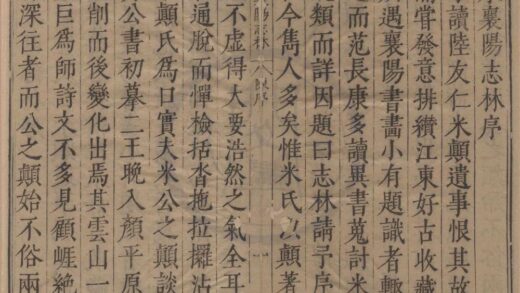 襄陽志林序
讀陸友仁米顛遺事恨其故
嘗發意排纘江東好古收藏
遇襄陽書畫小有題識者輒
之而范長康多讀異書蒐討米
類而詳因題曰志林請予序
今雋人多矣惟米氏以顛著
志林 陳序 一
不虛得大要浩然之氣全耳
通脫而憚檢括沓拖拉攞沾
顛氏爲口實夫米公之顛談
公書初摹二王晚入顏平原
削而後變化出焉其雲山一
巨爲師詩文不多見顧崕絕
深往者而公之顛始不俗兩